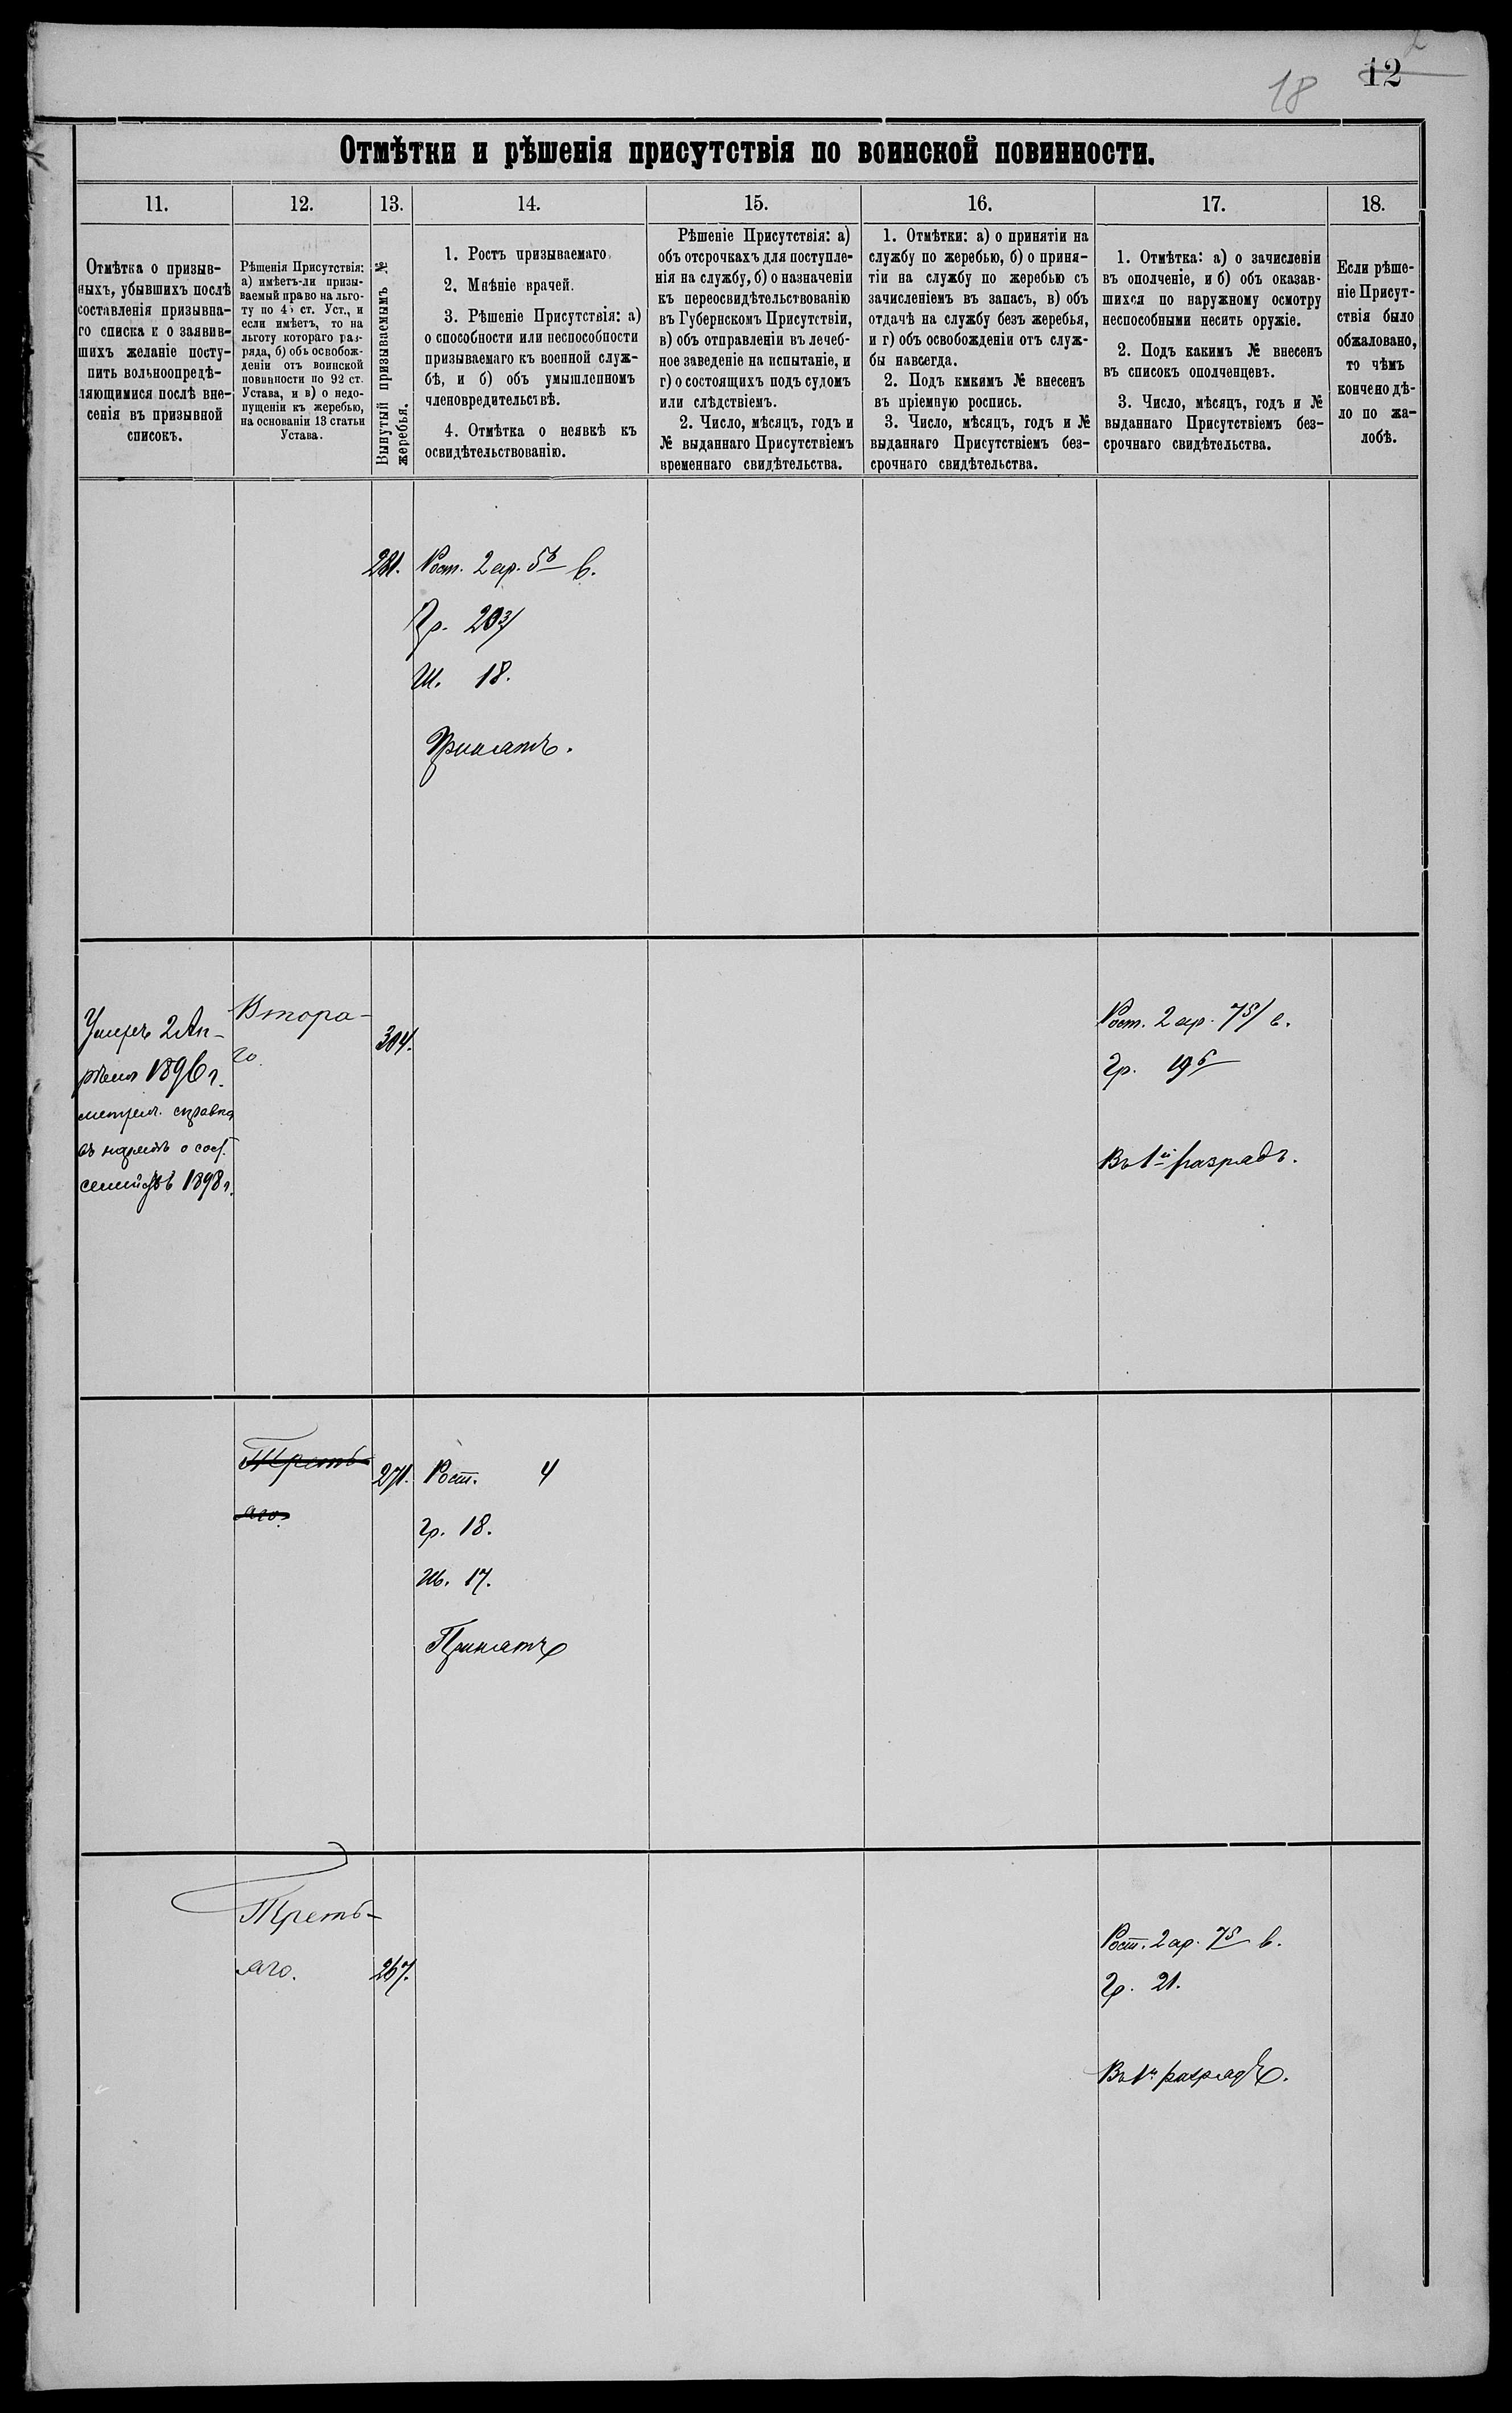 18 12
Отмѣтки и рѣшенія присутствія по воинской повинности.
11. 12. 13. 14. 15. 16. 17. 18.
Отмѣтка о призыв-
ныхъ, убывшихъ послѣ
составленія призывна-
го списка и о заявив-
шихъ желаніе посту-
пить вольноопредѣ-
ляющимися послѣ вне-
сенія въ призывной
списокъ.
Рѣшенія Присутствія:
а) имѣетъ-ли призы-
ваемый право на льго-
ту по 45 ст. Уст., и
если имѣетъ, то на
льготу котораго раз-
ряда, б) объ освобож-
деніи отъ воинской
повинности по 92 ст.
Устава, и в) о недо-
пущеніи къ жеребью,
на основаніи 13 статьи
Устава.
Вынутый призываемымъ №
жеребья.
1. Ростъ призываемаго.
2. Мнѣніе врачей.
3. Рѣшеніе Присутствія: а)
о способности или неспособности
призываемаго къ военной служ-
бѣ, и б) объ умышленномъ
членовредительствѣ.
4. Отмѣтка о неявкѣ къ
освидѣтельствованію.
Рѣшеніе Присутствія: а)
объ отсрочкахъ для поступле-
нія на службу, б) о назначеніи
къ переосвидѣтельствованію
въ Губернскомъ Присутствіи,
в) объ отправленіи въ лечеб-
ное заведеніе на испытаніе, и
г) о состоящихъ подъ судомъ
или слѣдствіемъ.
2. Число, мѣсяцъ, годъ и
№ выданнаго Присутствіемъ
временнаго свидѣтельства.
1. Отмѣтки: а) о принятіи на
службу по жеребью, б) о приня-
тіи на службу по жеребью съ
зачисленіемъ въ запасъ, в) объ
отдачѣ на службу безъ жеребья,
и г) объ освобожденіи отъ служ-
бы навсегда.
2. Подъ кикимъ № внесенъ
въ пріемную роспись.
3. Число, мѣсяцъ, годъ и №
выданнаго Присутствіемъ без-
срочнаго свидѣтельства.
1. Отмѣтка: а) о зачисленіи
въ ополченіе, и б) объ оказав-
шихся по наружному осмотру
неспособными несить оружіе.
2. Подъ какимъ № внесенъ
въ списокъ ополченцевъ.
3. Число, мѣсяцъ, годъ и №
выданнаго Присутствіемъ без-
срочнаго свидѣтельства.
Если рѣше-
ніе Присут-
ствія было
обжаловано,
то чѣмъ
кончено дѣ-
ло по жа-
лобѣ.
281. Рост. 2 ар. в.
Гр. 20
М. 18.
Принятъ.
Умеръ 2 Ап-
рѣля 1896 г.
метрич. справка
въ нарядѣ о сост.
семействъ 1898 г.
Втора-
го
304.
Рост. 2 ар. 7 в.
Гр. 19
Въ 1й разрядъ.
Треть-
яго.
271. Рост. 4
Гр. 18.
М. 17.
Принятъ
Треть-
яго.
267.
Рост. 2 ар. 7 в.
Гр. 21.
Въ 1й разрядъ.